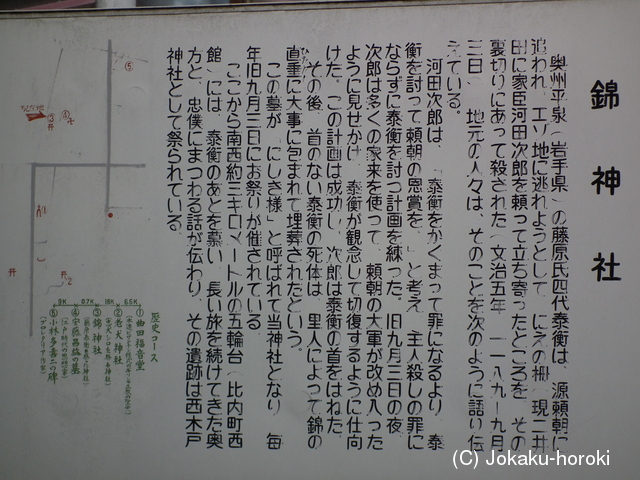 錦神社
奥州平泉（岩手県）の藤原氏四代泰衡は、源頼朝に
追われ、エゾ地に逃れようとして、にえの柵（現二井
田）に家臣河田次郎を頼って立ち寄ったところを、その
裏切りにあって殺された（文治五年、一一八九・九月
三日）。地元の人々は、そのことを次のように語り伝
えている。
河田次郎は、「泰衡をかくまって罪になるより、泰
衡を討って頼朝の恩賞を。」と考え、主人殺しの罪に
ならずに泰衡を討つ計画を練った。旧九月三日の夜、
次郎は多くの家来を使って、頼朝の大軍が攻め入った
ように見せかけ、泰衡が観念して切復するように仕向
けた。この計画は成功し、次郎は泰衡の首をはねた。
その後、首のない泰衡の死体は、里人によって錦の
直垂に大事に包まれて埋葬されたという。
ひたたれ
この墓が、「にしき様」と呼ばれて当神社となり、毎
年旧九月三日にお祭りが催されている。
ここから南西約三キロメートルの五輪台（比内町西
館）には、泰衡のあとを慕い、長い旅を続けてきた奥
方と、忠僕にまつわる話が伝わり、その遺跡は西木戸
神社として祭られている。
歴史コース
①曲田福音堂
②老犬神社
③錦神社
④安藤昌益の墓
⑤小林多喜二の碑
(プロレタリア作家)
6.5K
18K
0.7K
9K
(C) Jokaku-horoki